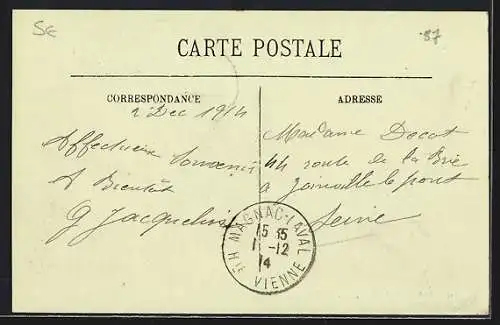 SE
87
CARTE POSTALE
CORRESPONDANCE
ADRESSE
2 Dec 1914
Affectueux Souvenir
A Bientôt
G Jacquelin
Madame Docot
44 route de la Brie
a Joinville le pont
Seine
MAGNAC-LAVAL
15 15
1 -12
14
Hte VIENNE